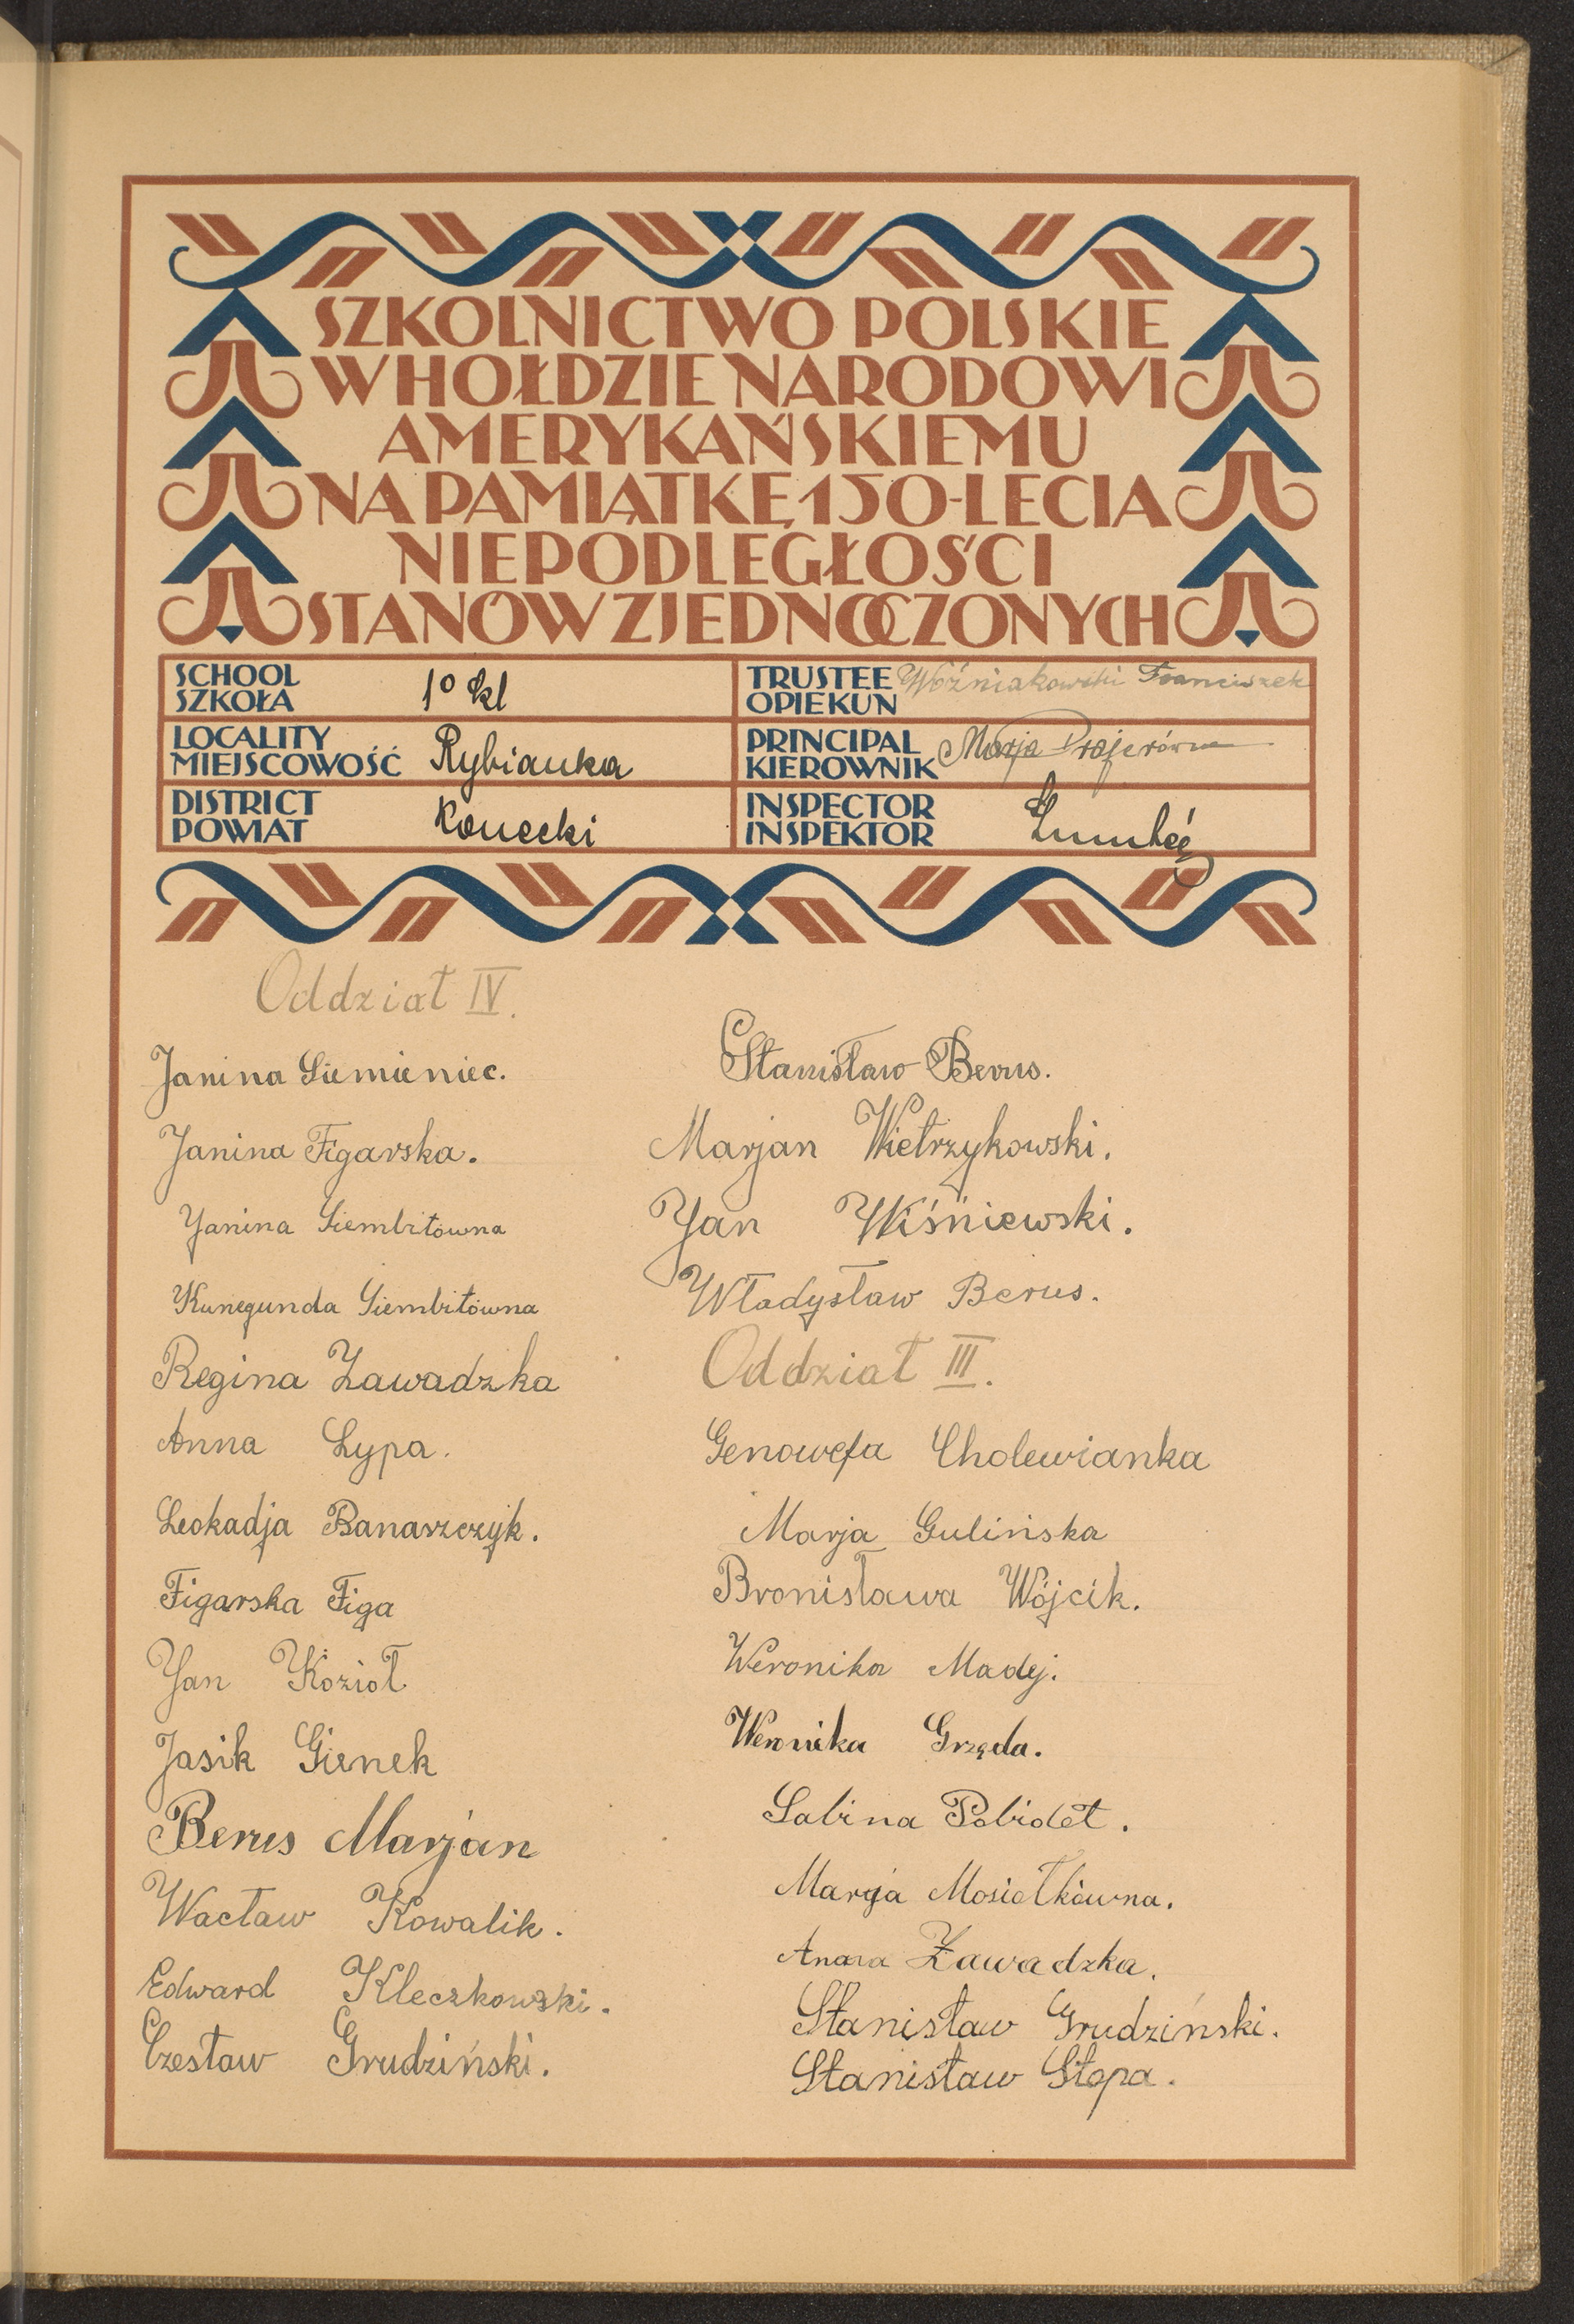 SZKOLNICTWO POLSKIE
W HOŁDZIE NARODOWI
AMERYKAŃSKIEMU
NA PAMIĄTKĘ 150-LECIA
NIEPODLEGŁOŚCI
STANÓW ZJEDNOCZONYCH
SCHOOL
SZKOŁA
1º kl
TRUSTEE
OPIEKUN
Woźniakowski Franciszek
LOCALITY
MIEJSCOWOŚĆ
Rybianka
PRINCIPAL
KIEROWNIK
Marja Drajerówna
DISTRICT
POWIAT
Konecki
INSPECTOR
INSPEKTOR
Oddział IV.
Janina Siemieniec.
Janina Figarska.
Janina Siembitówna
Kunegunda Siembitówna
Regina Zawadzka
Anna Lypa.
Leokadja Banaszczyk.
Figarska Figa
Jan Kozioł
Jasik Gienek
Berus Marjan
Wacław Kowalik.
Edward Kleczkowski.
Czesław Grudziński.
Stanisław Berus.
Marjan Wietrzykowski.
Jan Wiśniewski.
Władysław Berus.
Oddział III.
Genowefa Cholewianka
Marja Gulińska
Bronisława Wójcik.
Weronika Madej.
Weronika Grzęda.
Sabina Pobideł.
Marja Mosiołkówna.
Anna Zawadzka.
Stanisław Grudziński.
Stanisław Stopa.